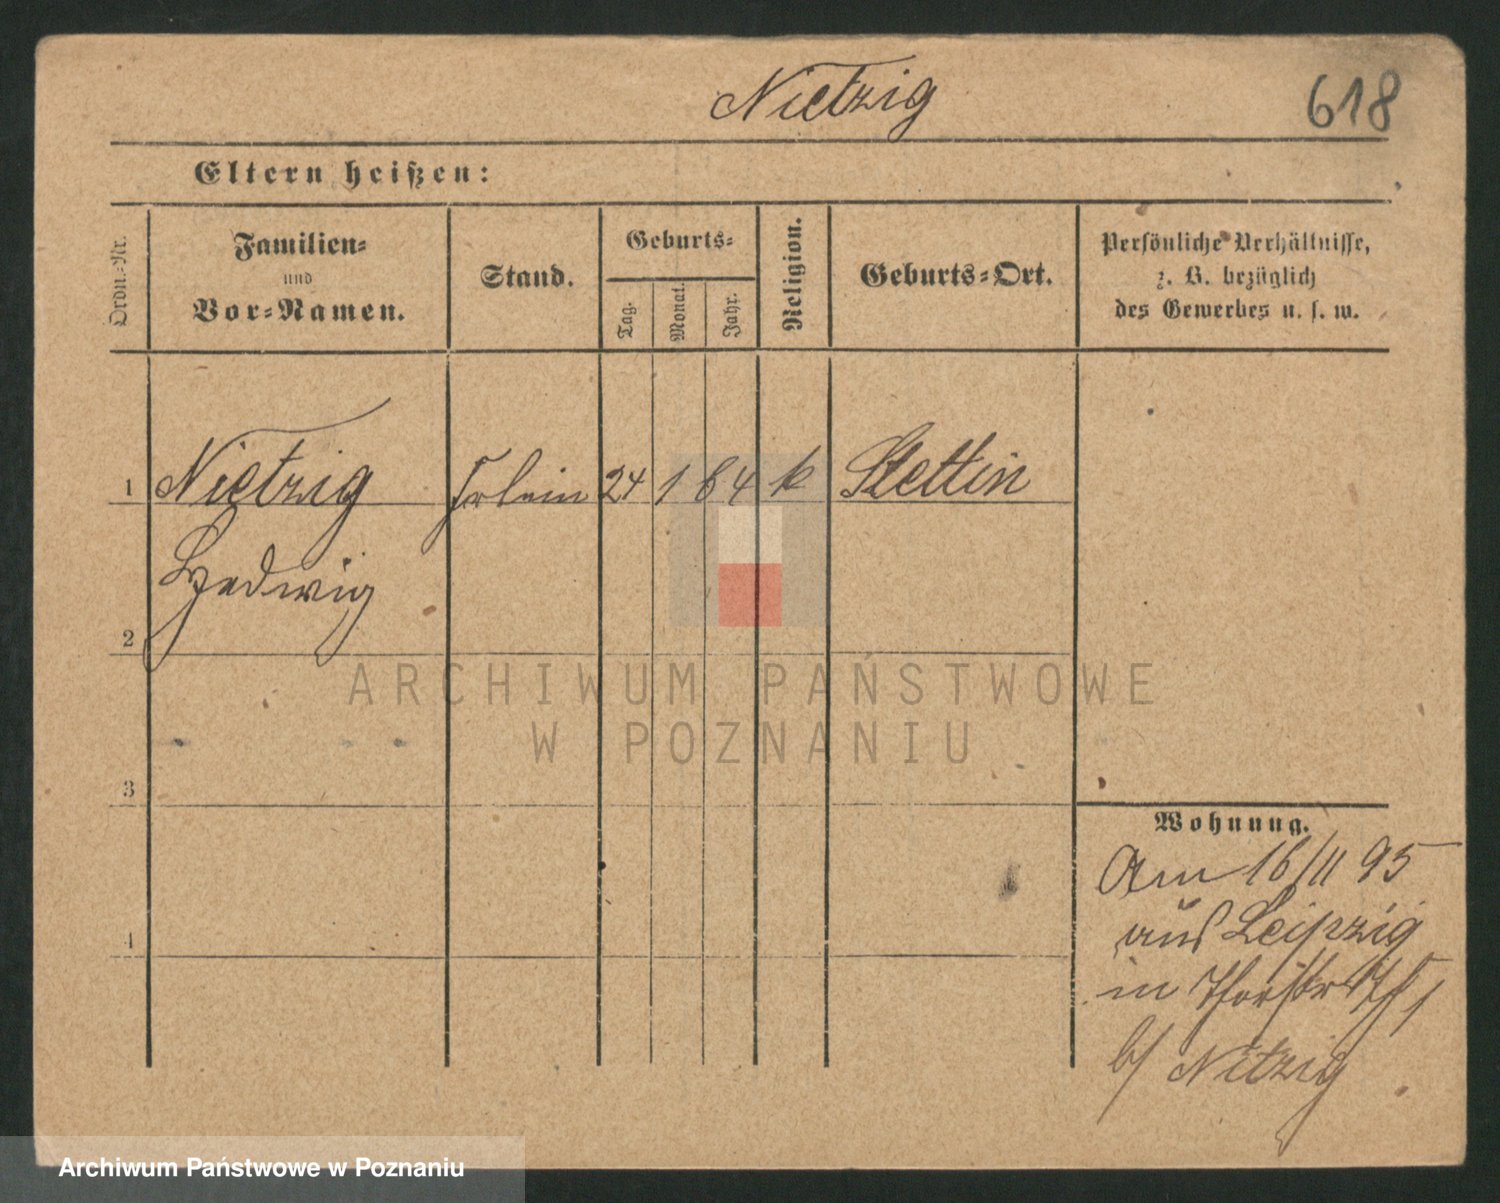 Nietzig
618
Eltern heißen:
Ordn.-Nr.
Familien-
und
Vor-Namen.
Stand.
Geburts-
Tag.
Monat.
Jahr.
Religion.
Geburts-Ort.
Persönliche Verhältnisse,
z. B. bezüglich
des Gewerbes u. s. w.
1 Nietzig Frlein 24 1 64 k Stettin
Hedwig
2
3
4
Wohnung.
Am 16/11 95
aus Leipzig
in
b/ Nitzig
ARCHIWUM PAŃSTWOWE
W POZNANIU
Archiwum Państwowe w Poznaniu